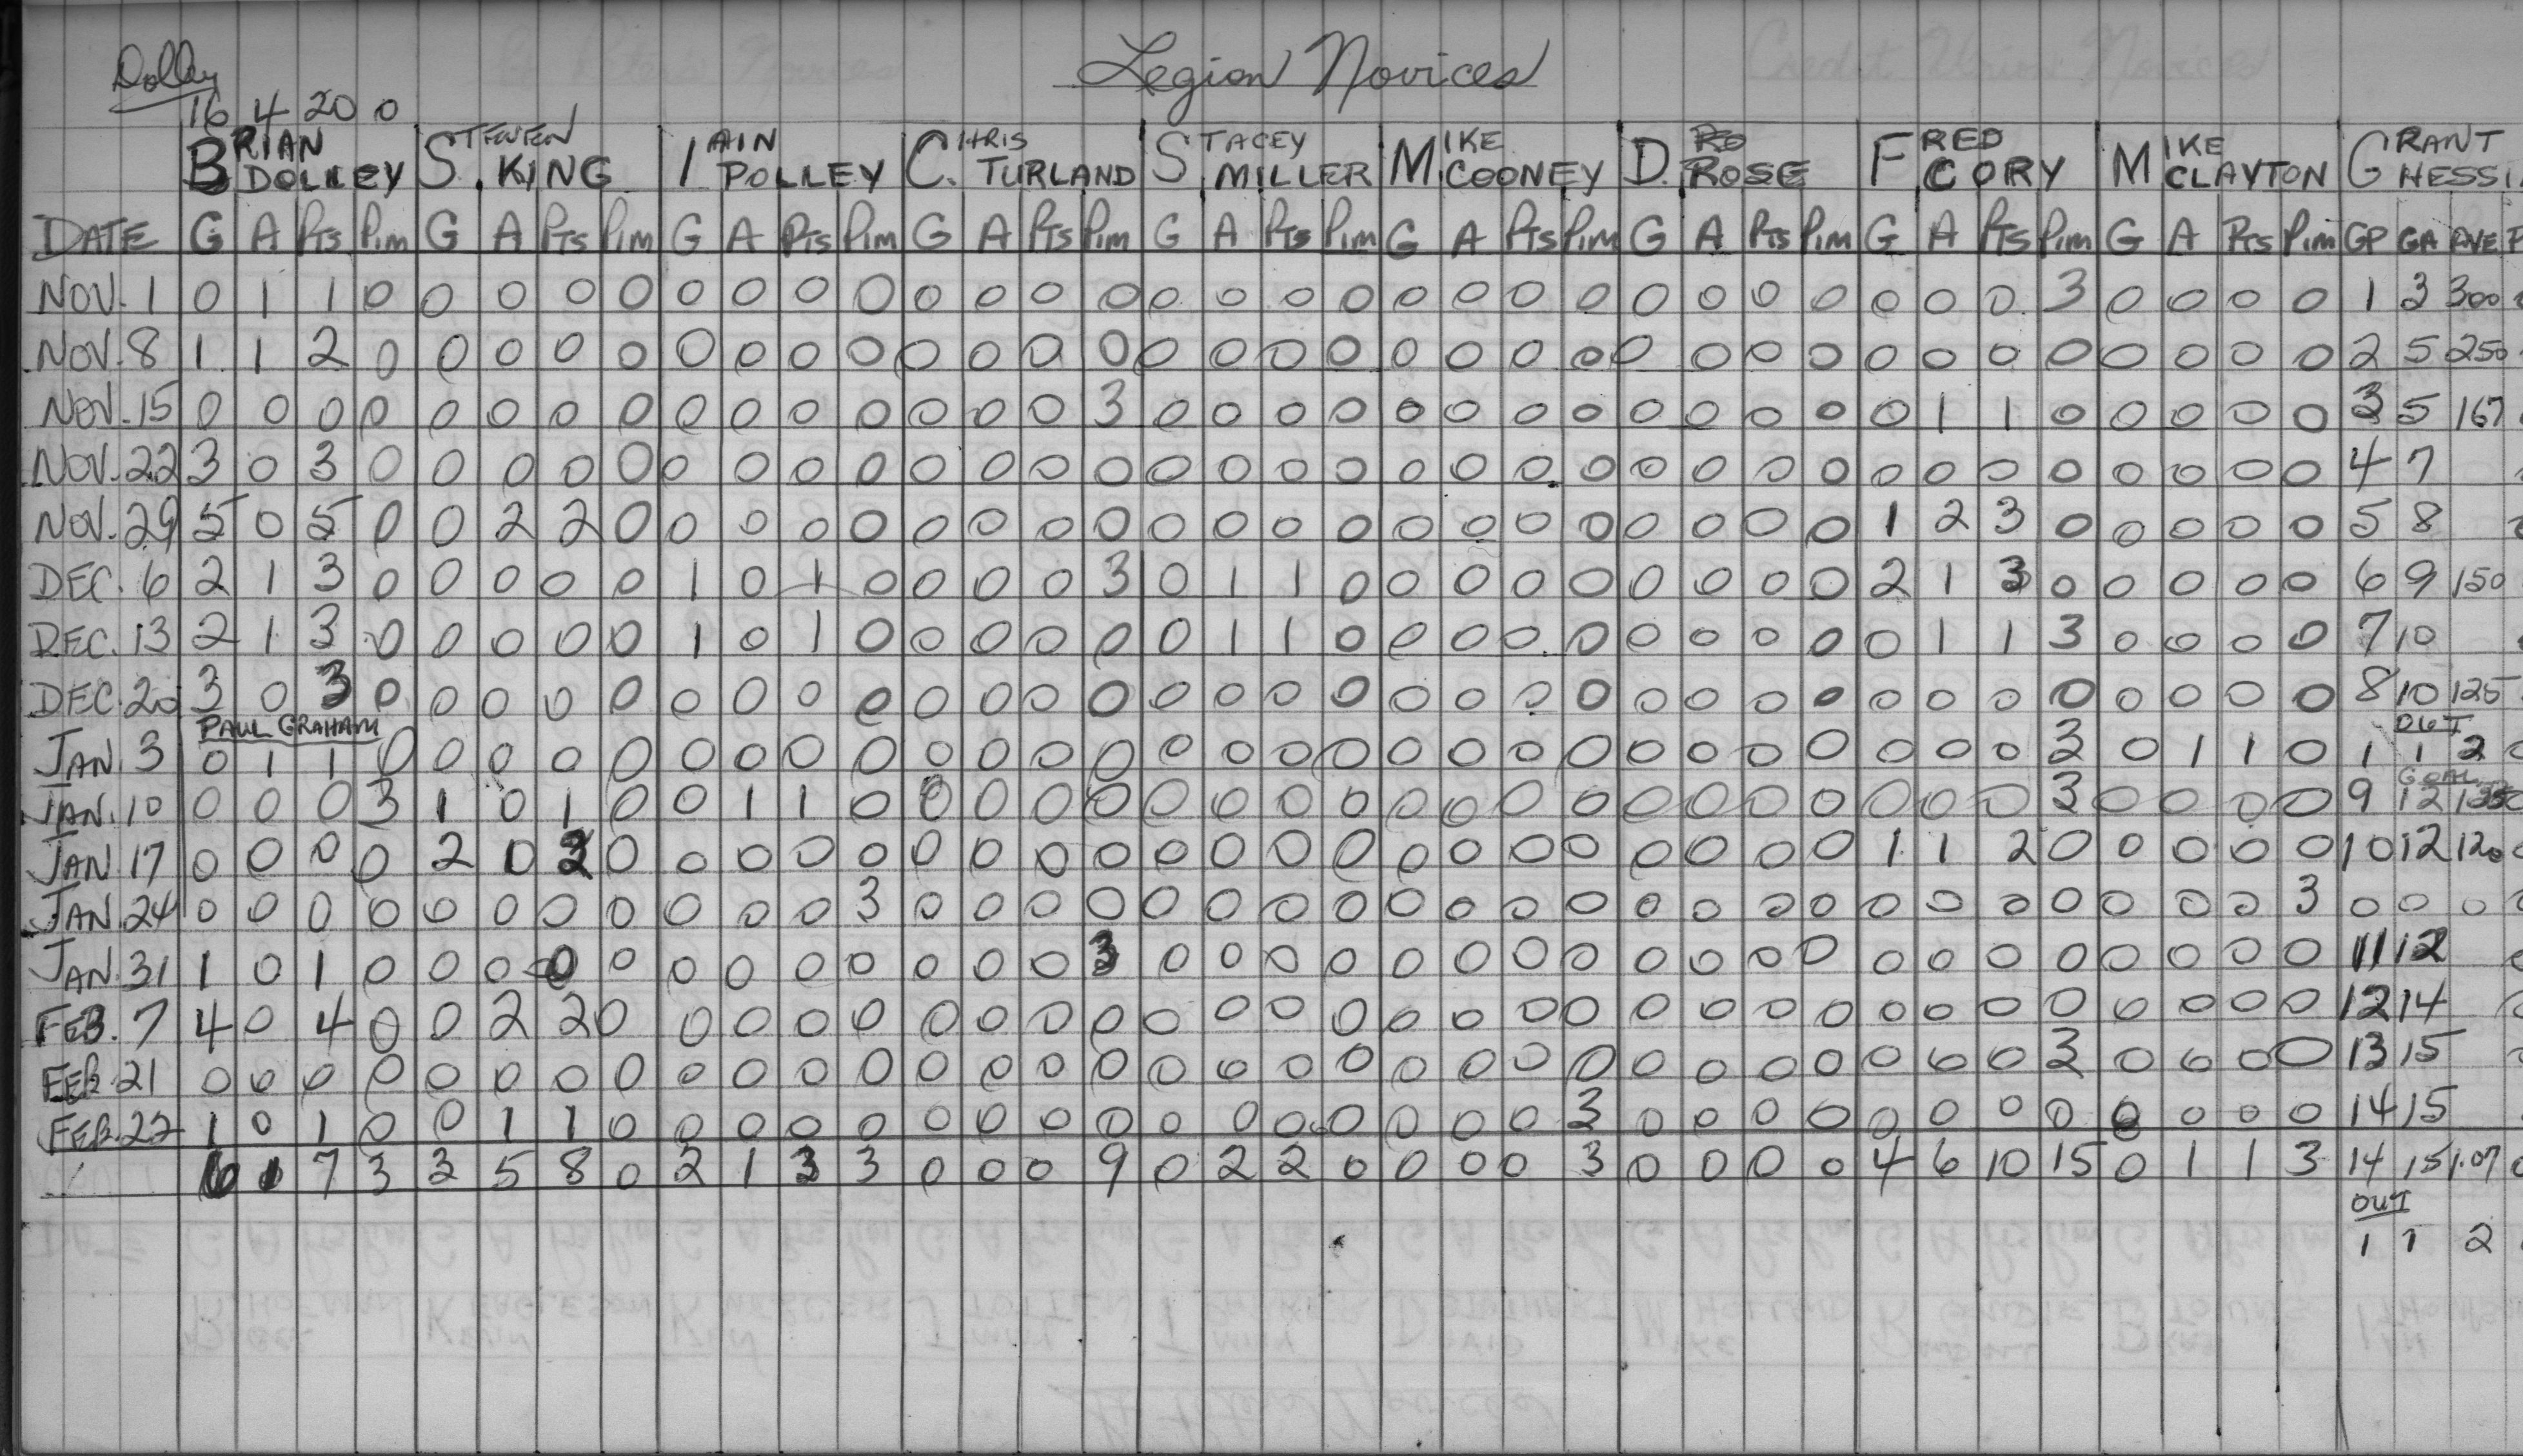 Legion Novices
Dolley
16 4 20 0
BRIAN DOLLEY STEVEN KING IAIN POLLEY CHRIS TURLAND STACEY MILLER MIKE COONEY D. ROSE FRED CORY MIKE CLAYTON GRANT HESSI
DATE G A PTS PIM G A PTS PIM G A PTS PIM G A PTS PIM G A PTS PIM G A PTS PIM G A PTS PIM G A PTS PIM G A PTS PIM GP GA AVE P
NOV. 1 0 1 1 0 0 0 0 0 0 0 0 0 0 0 0 0 0 0 0 0 0 0 0 0 0 0 0 0 0 0 0 3 0 0 0 0 1 3 300
NOV. 8 1 1 2 0 0 0 0 0 0 0 0 0 0 0 0 0 0 0 0 0 0 0 0 0 0 0 0 0 0 0 0 0 0 0 0 0 2 5 250
NOV. 15 0 0 0 0 0 0 0 0 0 0 0 0 0 0 0 3 0 0 0 0 0 0 0 0 0 0 0 0 0 1 1 0 0 0 0 0 3 5 167
NOV. 22 3 0 3 0 0 0 0 0 0 0 0 0 0 0 0 0 0 0 0 0 0 0 0 0 0 0 0 0 0 0 0 0 0 0 0 0 4 7
NOV. 29 5 0 5 0 0 2 2 0 0 0 0 0 0 0 0 0 0 0 0 0 0 0 0 0 0 0 0 0 1 2 3 0 0 0 0 0 5 8
DEC. 6 2 1 3 0 0 0 0 0 1 0 1 0 0 0 0 3 0 1 1 0 0 0 0 0 0 0 0 0 2 1 3 0 0 0 0 0 6 9 150
DEC. 13 2 1 3 0 0 0 0 0 1 0 1 0 0 0 0 0 0 1 1 0 0 0 0 0 0 0 0 0 0 1 1 3 0 0 0 0 7 10
DEC. 20 3 0 3 0 0 0 0 0 0 0 0 0 0 0 0 0 0 0 0 0 0 0 0 0 0 0 0 0 0 0 0 0 0 0 0 0 8 10 125
PAUL GRAHAM OUT
JAN. 3 0 1 1 0 0 0 0 0 0 0 0 0 0 0 0 0 0 0 0 0 0 0 0 0 0 0 0 0 0 0 0 3 0 1 1 0 1 1 2
GOAL
JAN. 10 0 0 0 3 1 0 1 0 0 1 1 0 0 0 0 0 0 0 0 0 0 0 0 0 0 0 0 0 0 0 0 3 0 0 0 0 9 12
JAN. 17 0 0 0 0 2 0 2 0 0 0 0 0 0 0 0 0 0 0 0 0 0 0 0 0 0 0 0 0 1 1 2 0 0 0 0 0 10 12 120
JAN. 24 0 0 0 0 0 0 0 0 0 0 0 3 0 0 0 0 0 0 0 0 0 0 0 0 0 0 0 0 0 0 0 0 0 0 0 3 0 0 0
JAN. 31 1 0 1 0 0 0 0 0 0 0 0 0 0 0 0 3 0 0 0 0 0 0 0 0 0 0 0 0 0 0 0 0 0 0 0 0 11 12
FEB. 7 4 0 4 0 0 2 2 0 0 0 0 0 0 0 0 0 0 0 0 0 0 0 0 0 0 0 0 0 0 0 0 0 0 0 0 0 12 14
FEB. 21 0 0 0 0 0 0 0 0 0 0 0 0 0 0 0 0 0 0 0 0 0 0 0 0 0 0 0 0 0 0 0 3 0 0 0 0 13 15
FEB. 22 1 0 1 0 0 1 1 0 0 0 0 0 0 0 0 0 0 0 0 0 0 0 0 3 0 0 0 0 0 0 0 0 0 0 0 0 14 15
6 1 7 3 3 5 8 0 2 1 3 3 0 0 0 9 0 2 2 0 0 0 0 3 0 0 0 0 4 6 10 15 0 1 1 3 14 15 1.07
OUT
1 1 2